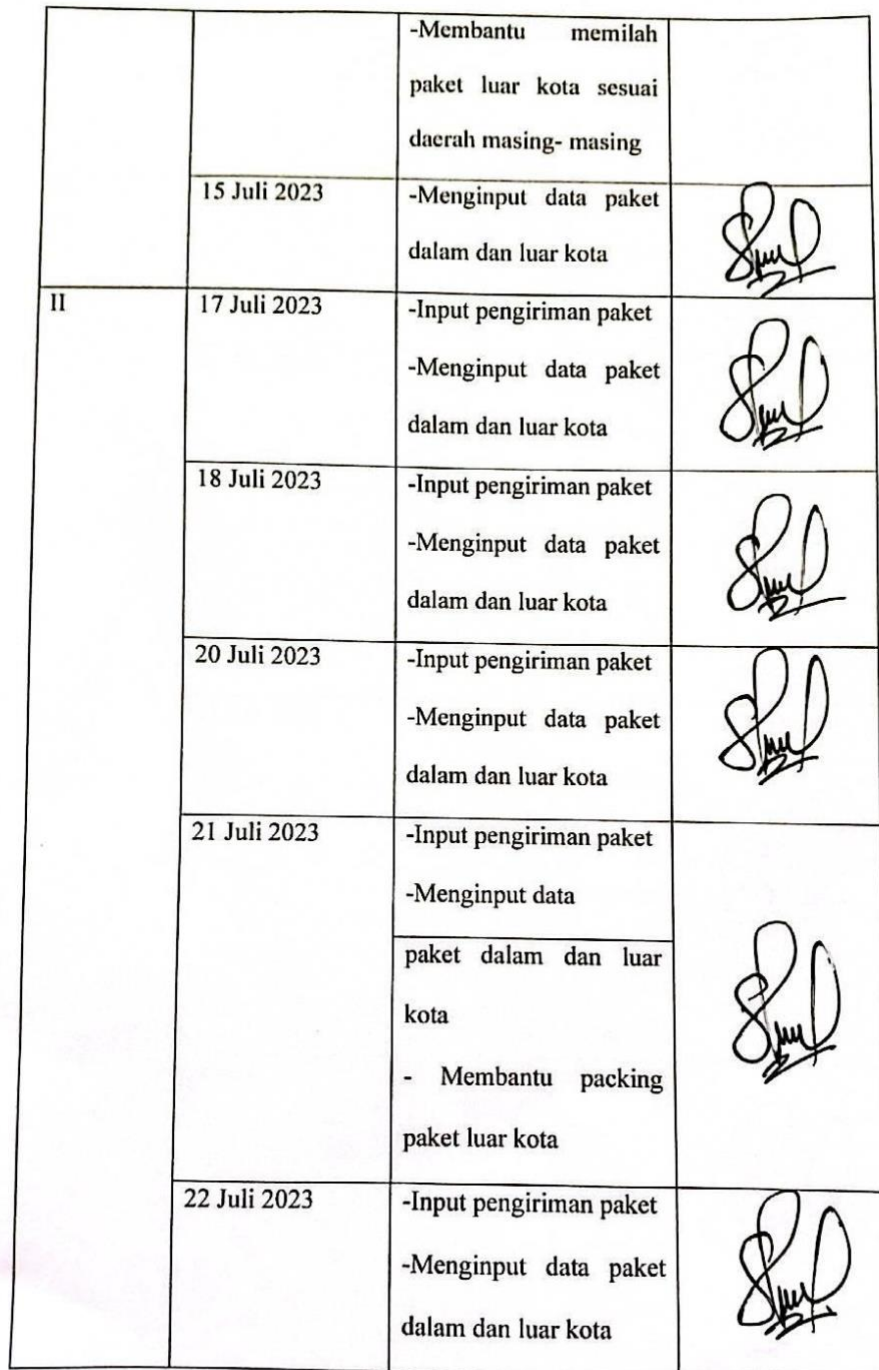 -Membantu memilah
paket luar kota sesuai
daerah masing- masing
15 Juli 2023
-Menginput data paket
dalam dan luar kota
II
17 Juli 2023
-Input pengiriman paket
-Menginput data paket
dalam dan luar kota
18 Juli 2023
-Input pengiriman paket
-Menginput data paket
dalam dan luar kota
20 Juli 2023
-Input pengiriman paket
-Menginput data paket
dalam dan luar kota
21 Juli 2023
-Input pengiriman paket
-Menginput data
paket dalam dan luar
kota
- Membantu packing
paket luar kota
22 Juli 2023
-Input pengiriman paket
-Menginput data paket
dalam dan luar kota